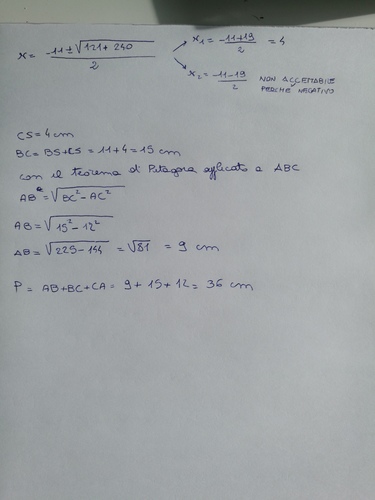 x = (-11 ± √(121 + 240)) / 2 → x₁ = (-11+19)/2 = 4
→ x₂ = (-11-19)/2 NON ACCETTABILE PERCHÉ NEGATIVO
CS = 4 cm
BC = BS + CS = 11 + 4 = 15 cm
con il teorema di Pitagora applicato a ABC
AB = √(BC² - AC²)
AB = √(15² - 12²)
AB = √(225 - 144) = √81 = 9 cm
P = AB + BC + CA = 9 + 15 + 12 = 36 cm